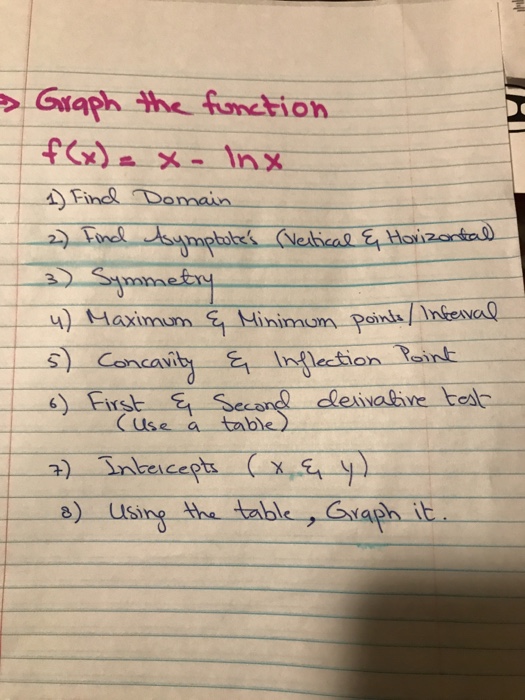 ⇒ Graph the function
f(x) = x - lnx
1) Find Domain
2) Find Asymptote's (Vertical & Horizontal)
3) Symmetry
4) Maximum & Minimum points / Interval
5) Concavity & Inflection Point
6) First & Second derivative test
(Use a table)
7) Intercepts (x & y)
8) Using the table, Graph it.